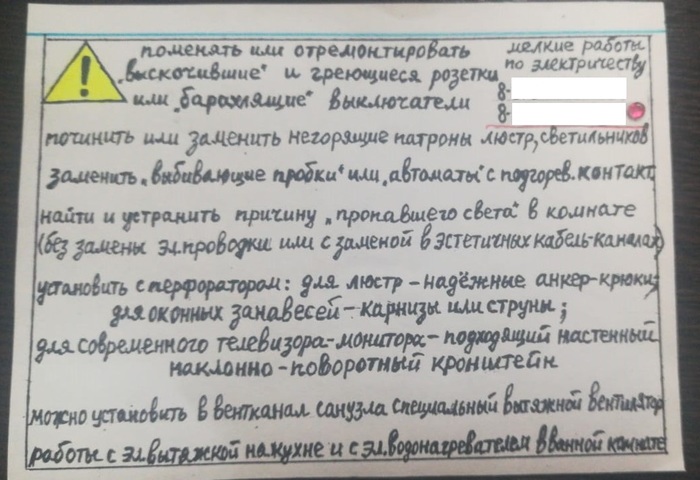 !
поменять или отремонтировать
„выскочившие" и греющиеся розетки
или „барахлящие" выключатели
мелкие работы
по электричеству
8-
8-
починить или заменить негорящие патроны люстр, светильников
заменить „выбивающие пробки" или „автоматы" с подгорев. контакт
найти и устранить причину „пропавшего света" в комнате
(без замены эл.проводки или с заменой в эстетичных кабель-каналах)
установить с перфоратором: для люстр - надёжные анкер-крюки;
для оконных занавесей - карнизы или струны;
для современного телевизора-монитора - подходящий настенный
наклонно-поворотный кронштейн
можно установить в вентканал санузла специальный вытяжной вентилятор
работы с эл.вытяжкой на кухне и с эл.водонагревателем в ванной комнате